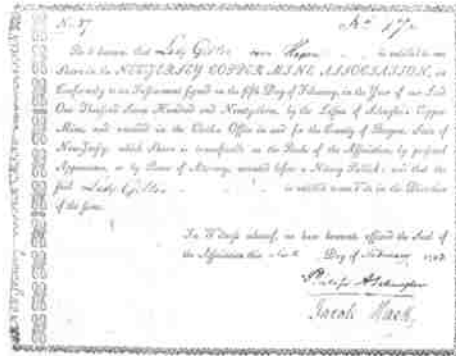 No. 37
Be it known, that Lady Giolioe is entitled to one
Share in the NEW JERSEY COPPER MINE ASSOCIATION, in
Conformity to an Instrument signed on the fifth Day of February, in the Year of our Lord
One Thousand Seven Hundred and Ninety three, by the Lessees of Schuyler's Copper
Mine, and recorded in the Clerk's Office in and for the County of Bergen, State of
New Jersey; which Share is transferable on the Books of the Association, by personal
Appearance, or by Power of Attorney, executed before a Notary Public; and that the
said Lady is entitled to one Vote in the Direction
of the same.
In Witness whereof, we have hereunto affixed the Seal of
the Association this Day of February 179
Jacob Mark